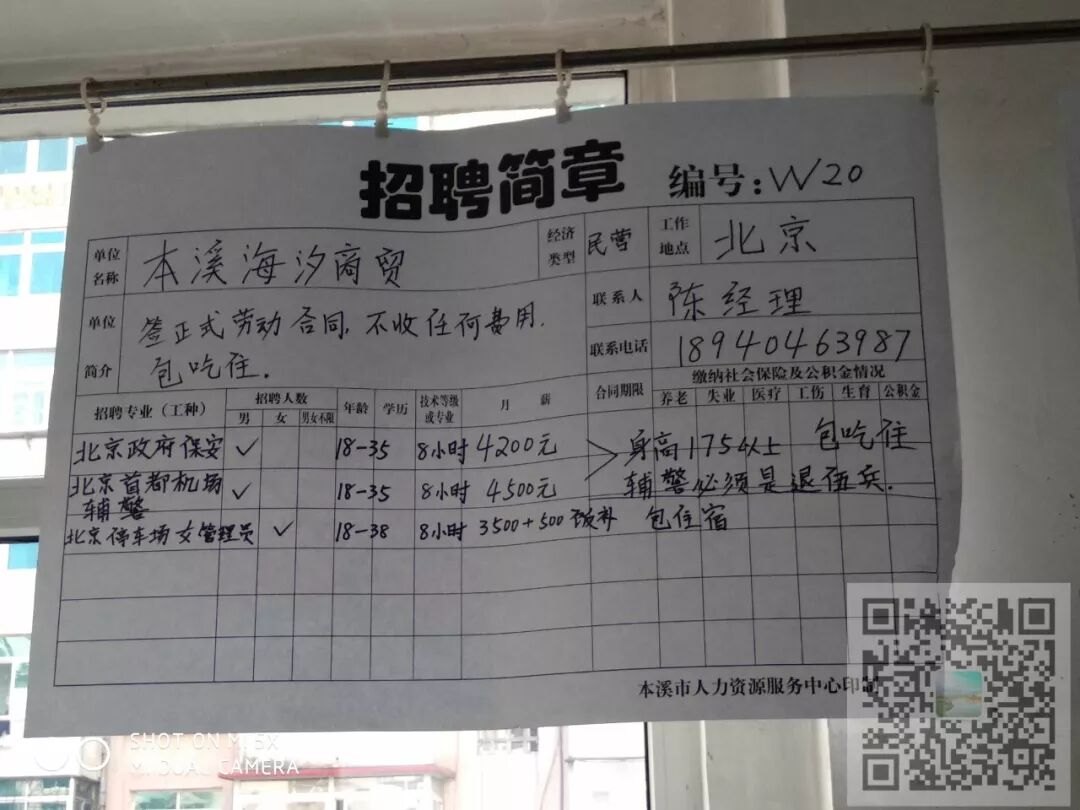 招聘简章 编号：W20
单位名称 本溪海汐商贸 经济类型 民营 工作地点 北京
单位简介 签正式劳动合同，不收任何费用．
包吃住．
联系人 陈经理
联系电话 18940463987
招聘专业（工种） 招聘人数 男 女 男女不限 年龄 学历 技术等级或专业 月薪 合同期限 缴纳社会保险及公积金情况
养老 失业 医疗 工伤 生育 公积金
北京政府保安 ✓ 18-35 8小时 4200元 身高175以上 包吃住
北京首都机场辅警 ✓ 18-35 8小时 4500元 辅警必须是退伍兵．
北京停车场女管理员 ✓ 18-38 8小时 3500+500 包住宿
本溪市人力资源服务中心印制
SHOT ON MI 5X
MI DUAL CAMERA